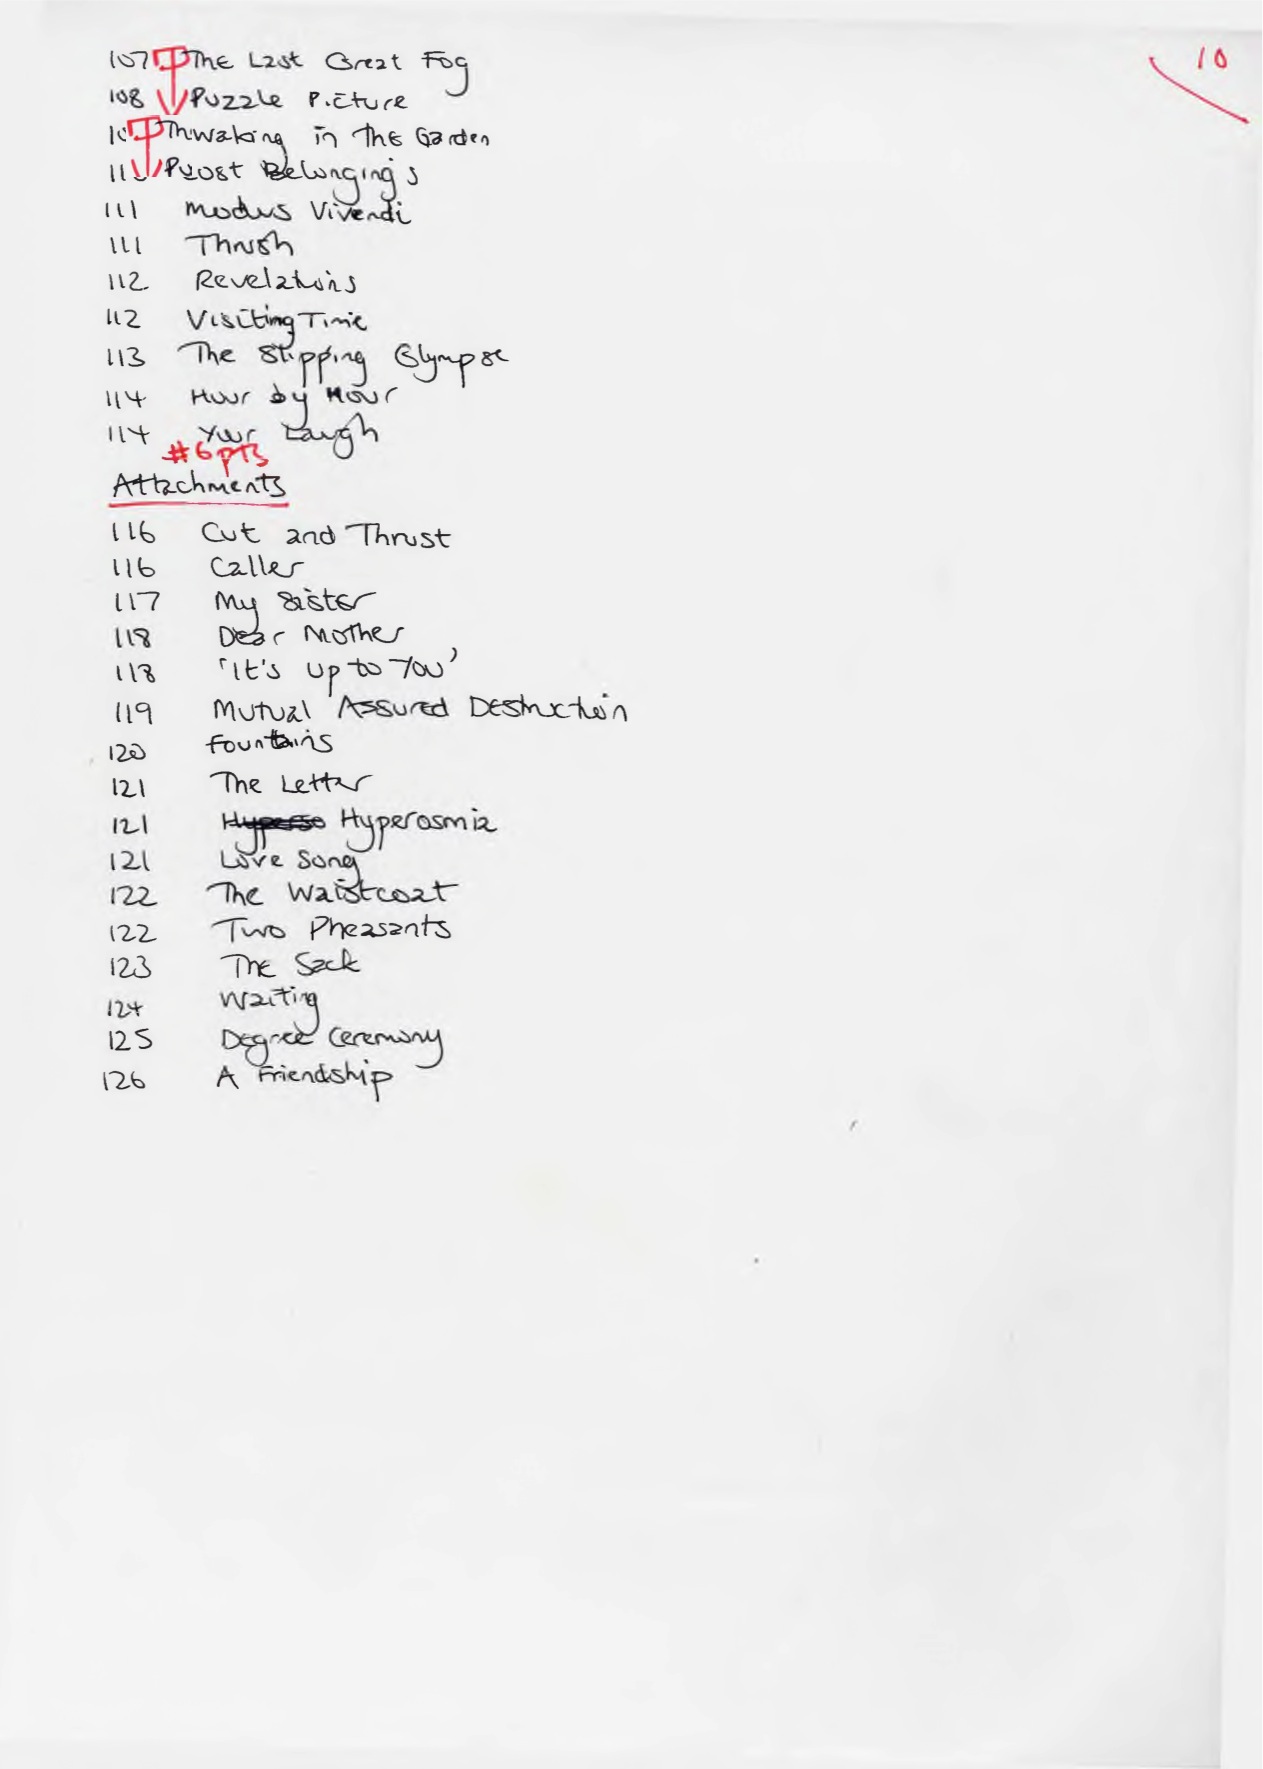 10
107 The Last Great Fog
108 Puzzle Picture
Thwaking in the Garden
Belongings
111 Modus Vivendi
111 Thrush
112 Revelations
112 Visiting Time
113 The Slipping Glympse
114 Hour by Hour
114 Your Laugh
#6pts
Attachments
116 Cut and Thrust
116 Caller
117 My Sister
118 Dear Mother
118 'It's up to You'
119 Mutual Assured Destruction
120 Fountains
121 The Letter
121 Hyperosmia
121 Love Song
122 The Waistcoat
122 Two Pheasants
123 The Sack
124 Waiting
125 Degree Ceremony
126 A Friendship